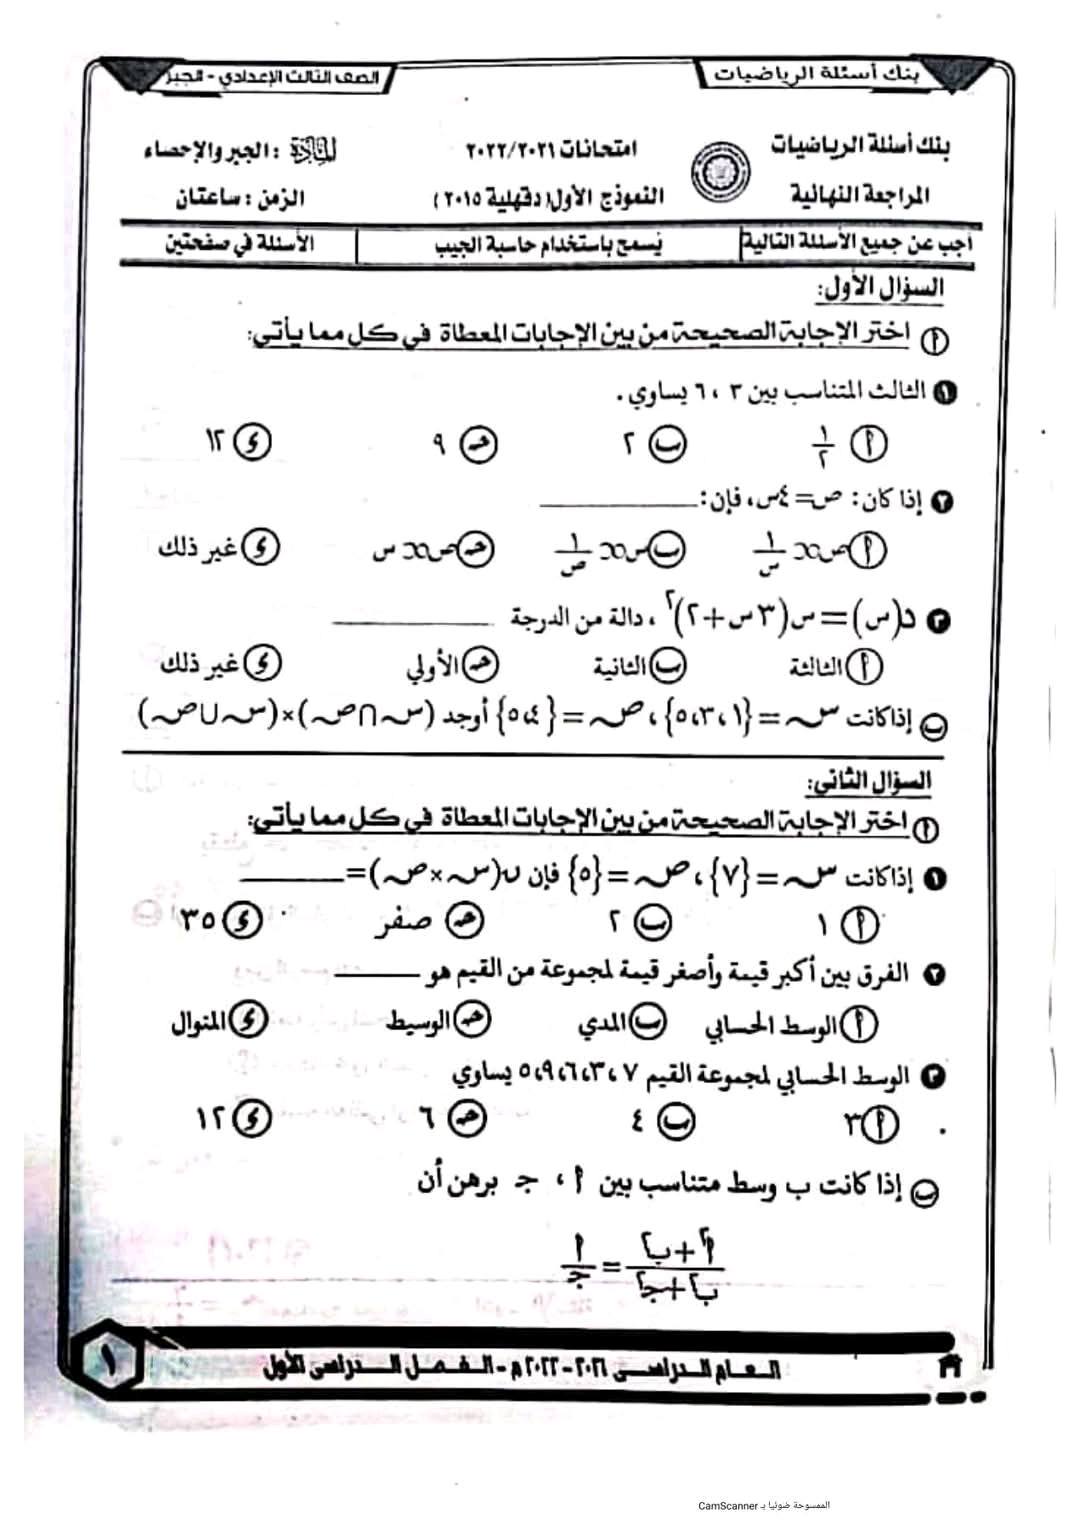 بنك أسئلة الرياضيات
الصف الثالث الإعدادي - الجبر
بنك أسئلة الرياضيات امتحانات ٢٠٢٢/٢٠٢١ المادة : الجبر والإحصاء
المراجعة النهائية النموذج الأول (دقهلية ٢٠١٥) الزمن : ساعتان
أجب عن جميع الأسئلة التالية يُسمح باستخدام حاسبة الجيب الأسئلة في صفحتين
السؤال الأول:
أ اختر الإجابة الصحيحة من بين الإجابات المعطاة في كل مما يأتي:
١ الثالث المتناسب بين ٣ ، ٦ يساوي .
أ ١/٢ ب ٢ ج ٩ د ١٢
٢ إذا كان: ص=٤س، فإن: ________
أ ص∝ ١/س ب س∝ ١/ص ج ص∝ س د غير ذلك
٣ د(س)=س(٣س+٢)²، دالة من الدرجة ________
أ الثالثة ب الثانية ج الأولي د غير ذلك
ب إذا كانت س={٥،٣،١}، ص={٥،٤} أوجد (س∩ص)×(س∪ص)
السؤال الثاني:
أ اختر الإجابة الصحيحة من بين الإجابات المعطاة في كل مما يأتي:
١ إذا كانت س={٧}، ص={٥} فإن ن(س×ص)=________
أ ١ ب ٢ ج صفر د ٣٥
٢ الفرق بين أكبر قيمة وأصغر قيمة لمجموعة من القيم هو ________
أ الوسط الحسابي ب المدي ج الوسيط د المنوال
٣ الوسط الحسابي لمجموعة القيم ٧،٣،٦،٩،٥ يساوي
أ ٣ ب ٤ ج ٦ د ١٢
ب إذا كانت ب وسط متناسب بين أ ، ج برهن أن
(أ²+ب²)/(ب²+ج²) = أ/ج
العام الدراسى ٢٠٢١-٢٠٢٢م - الفصل الدراسى الأول
١
الممسوحة ضوئيا بـ CamScanner